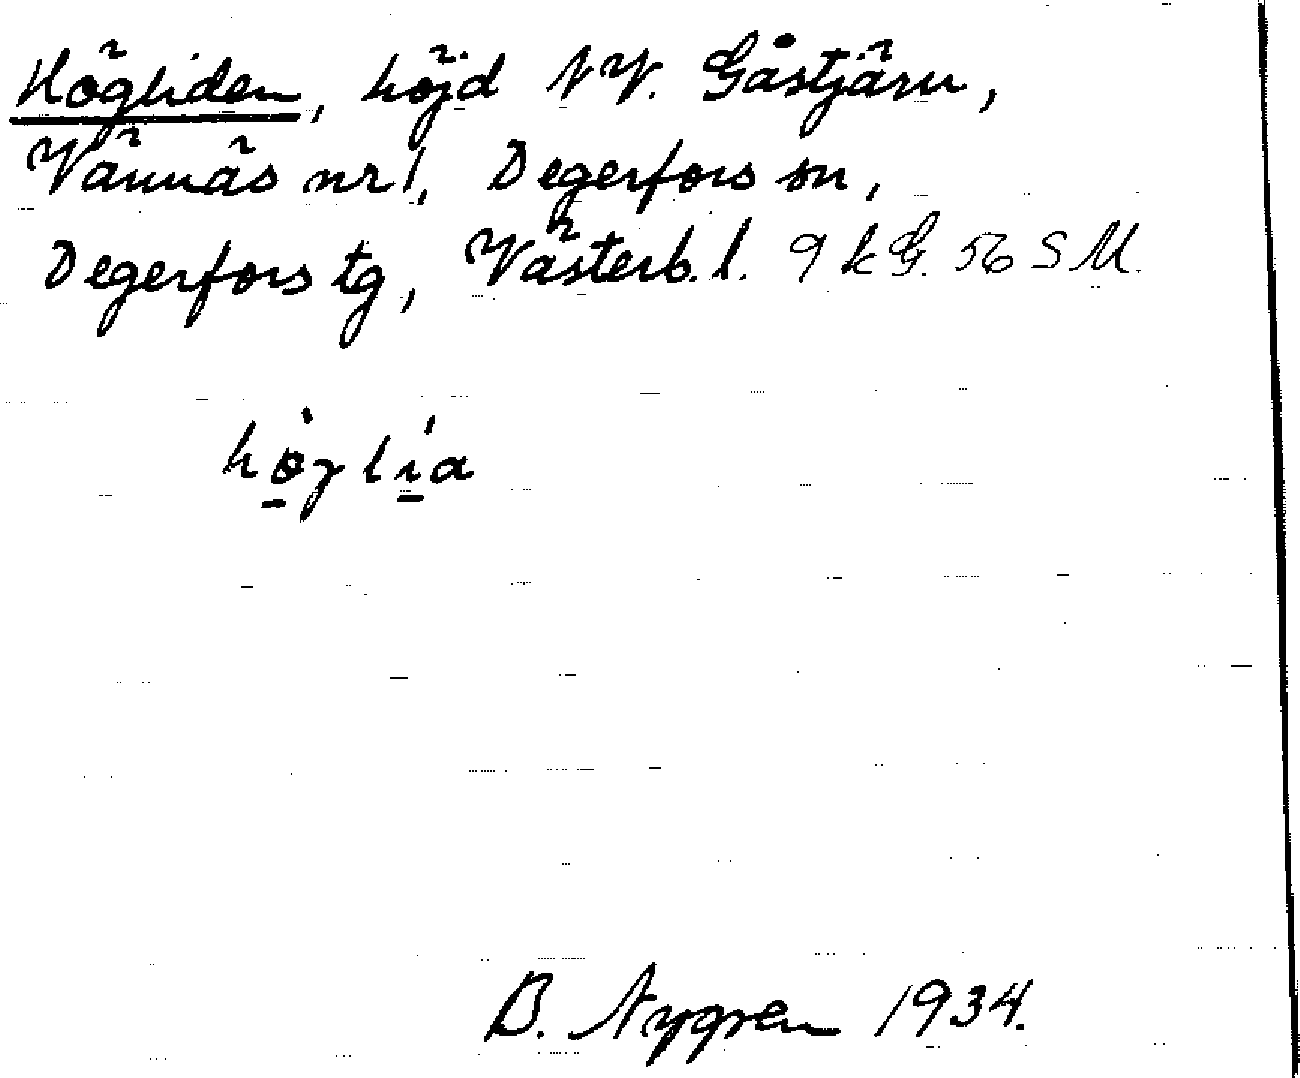 Högliden, höjd NV. Gåstjärn,
Vännäs nr 1, Degerfors sn,
Degerfors tg, Västerb. l. 9 k G. 56 S M.
höglia
B. Nygren 1934.